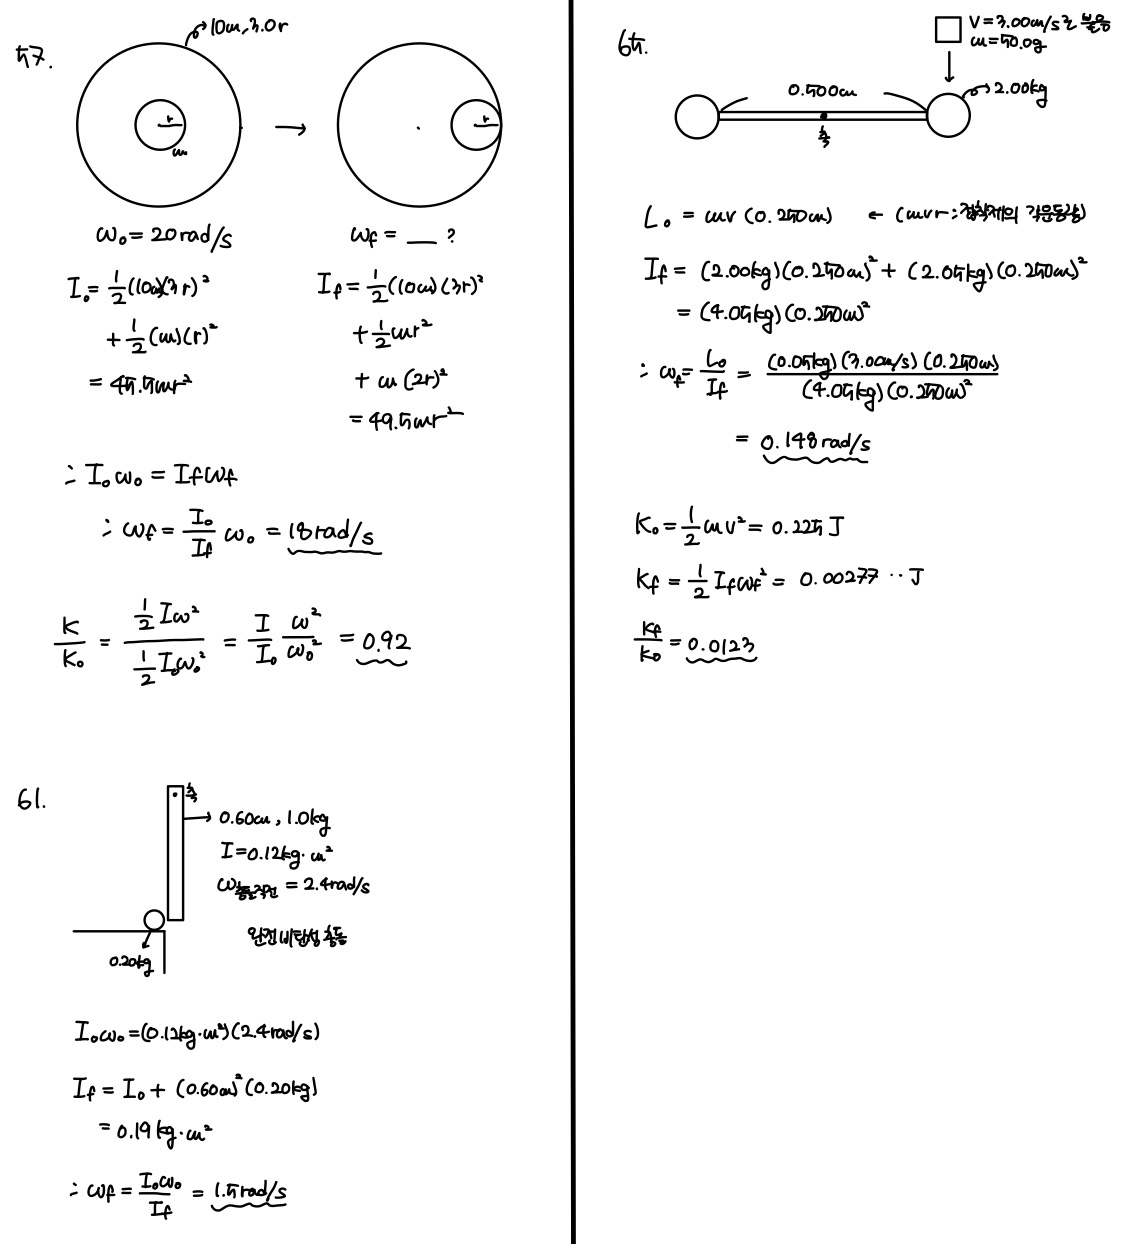 57.
10m, 3.0r
r
m
r
ω₀ = 20 rad/s
ωf = __ ?
I₀ = 1/2 (10m)(3r)²
+ 1/2 (m)(r)²
= 45.5mr²
If = 1/2 (10m)(3r)²
+ 1/2 mr²
+ m(2r)²
= 49.5mr²
∴ I₀ω₀ = Ifωf
∴ ωf = I₀/If ω₀ = 18 rad/s
K/K₀ = (1/2 Iω²)/(1/2 I₀ω₀²) = I/I₀ ω²/ω₀² = 0.92
61.
축
0.60m, 1.0kg
I = 0.12kg·m²
ω충돌직전 = 2.4rad/s
완전비탄성 충돌
0.20kg
I₀ω₀ = (0.12kg·m²)(2.4rad/s)
If = I₀ + (0.60m)²(0.20kg)
= 0.19kg·m²
∴ ωf = I₀ω₀/If = 1.5rad/s
65.
V = 3.00m/s로 붙음
m = 50.0g
0.500m
2.00kg
축
L₀ = mv(0.250m) ← (mvr : 점착제의 각운동량)
If = (2.00kg)(0.250m)² + (2.05kg)(0.250m)²
= (4.05kg)(0.250m)²
∴ ωf = L₀/If = (0.05kg)(3.00m/s)(0.250m)/(4.05kg)(0.250m)²
= 0.148rad/s
K₀ = 1/2 mv² = 0.225 J
Kf = 1/2 Ifωf² = 0.00277 ·· J
Kf/K₀ = 0.0123